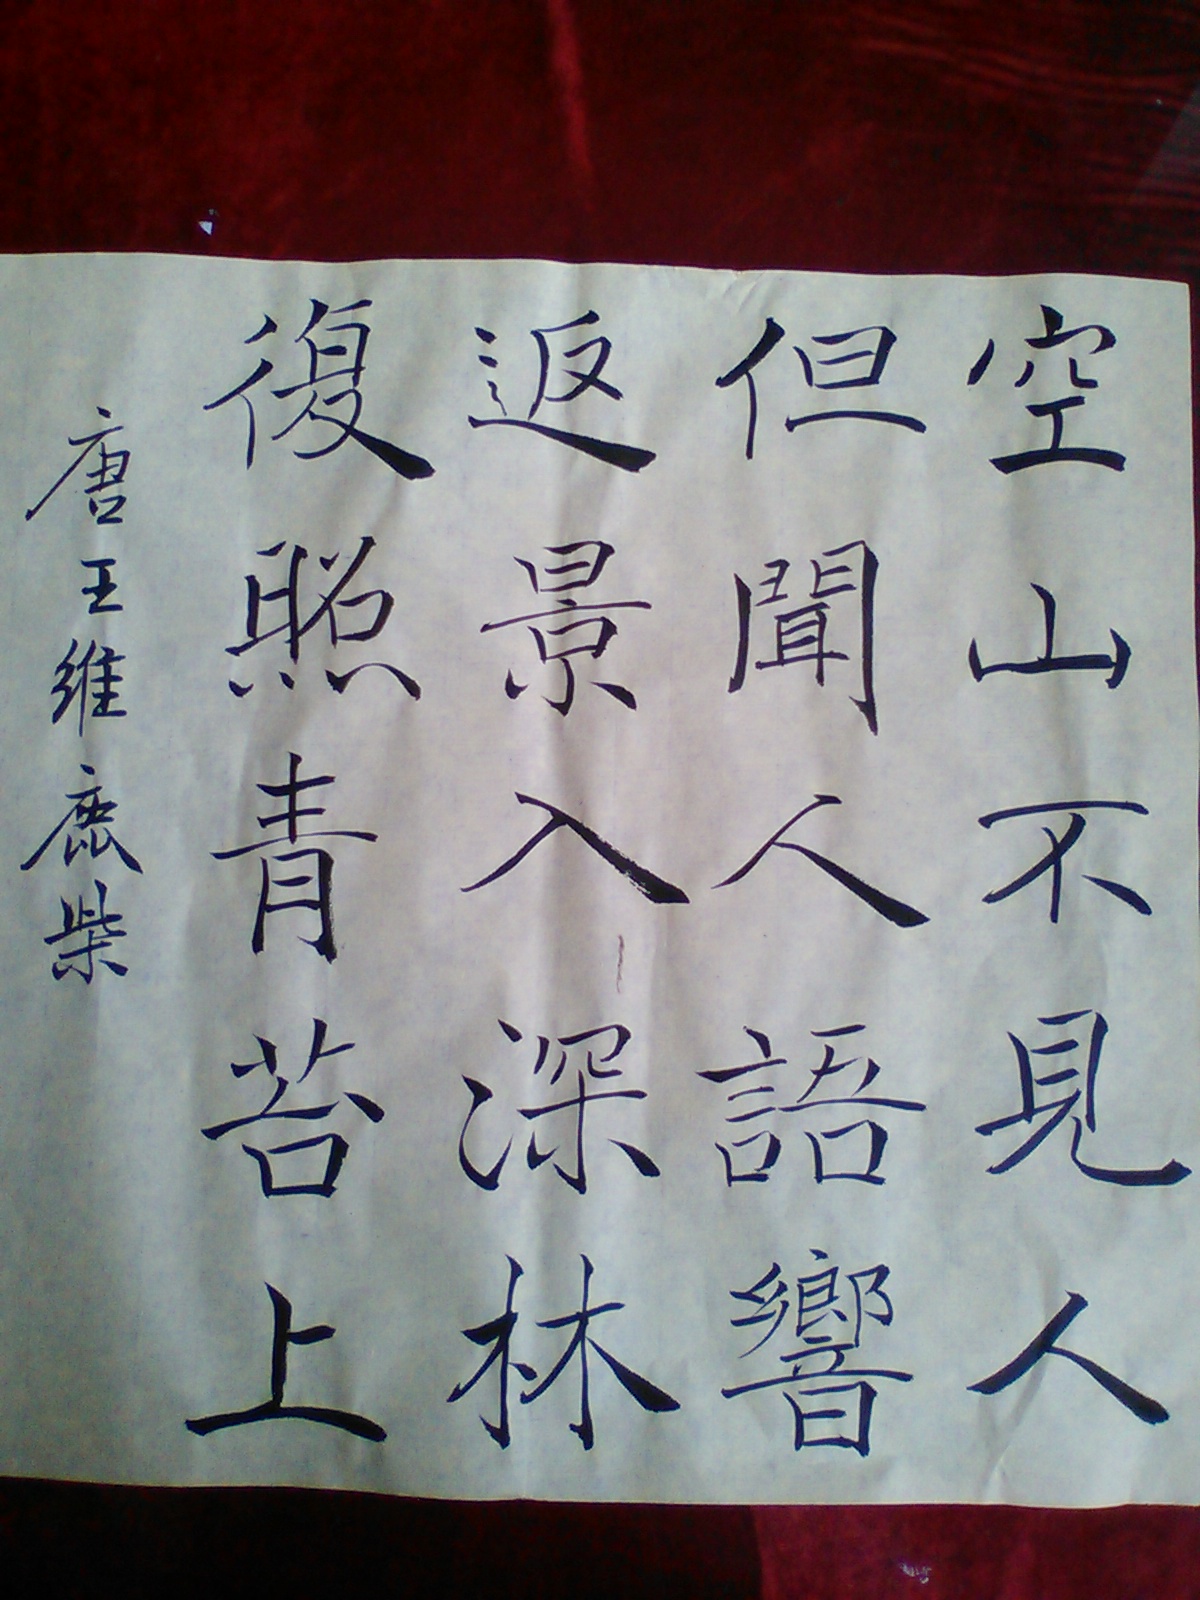 空山不見人
但聞人語響
返景入深林
復照青苔上
唐王維鹿柴